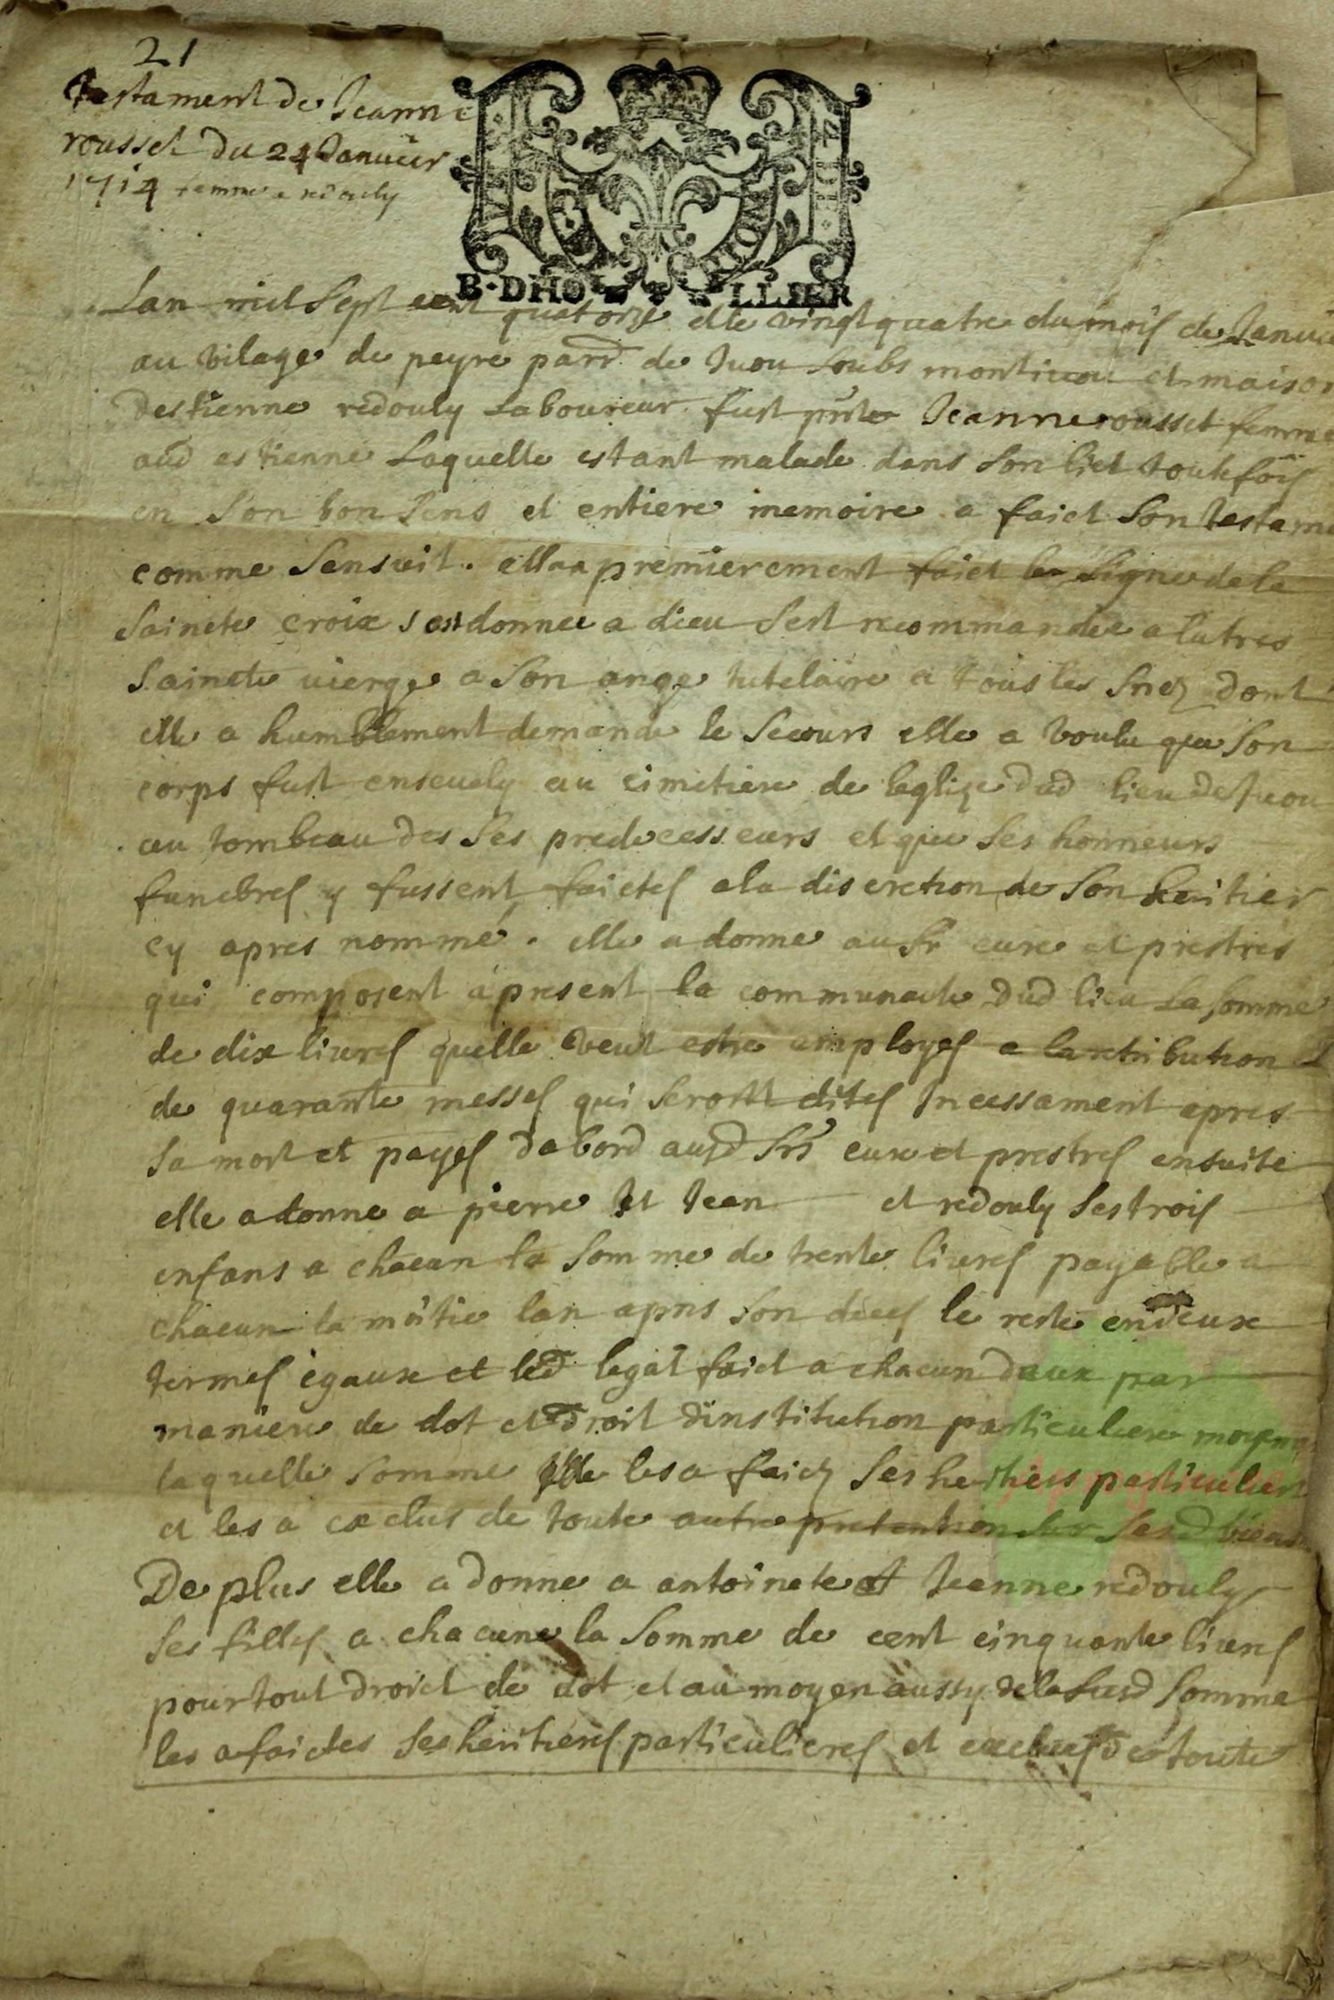 21
testament de Jeanne
rousset du 24 Janvier
1714 femme a redouly
B·DHO LLIER
Lan mil sept cent quatorze et le vingt quatre du mois de Janvie
au vilage de peyre parr. de Juou soubs montivou et maison
destienne redouly laboureur fust pnte Jeanne rousset femme
aud estienne laquelle estant malade dans son lict toutefois
en son bon sens et entiere memoire a faict son testame
comme sensuit. ella a premierement faict le signe de la
saincte croix sest donnee a dieu sest recommandee a la tres
saincte vierge a son ange tutelaire a tous les sncz dont
elle a humblement demande le secours elle a voulu que son
corps fust ensevely au cimetiere de leglize dud lieu de Juou
au tombeau des ses predecesseurs et que ses honneurs
funebres y fussent faictes a la discretion de son heritier
cy apres nommé. elle a donne au sr cure et prestres
qui composent a present la communaute dud lieu la somme
de dix livres quelle veut estre employes a la retribution
de quarante messes qui seront dites Incessament apres
sa mort et payes dabord ausd srs cure et prestres ensuite
elle a donne a pierre et Jean et redouly ses trois
enfans a chacun la somme de trente livres payable a
chacun la moitie lan apres son deces le reste en deux
termes egaux et led legat faict a chacun deux par
maniere de dot et droit dinstitution particuliere moyen
laquelle somme elle les a faicz ses heritiers particuliers
et les a exclus de toute autre pretention sur sesd biens
De plus elle a donne a antoinete et Jeanne redouly
ses filles a chacune la somme de cent cinquante livres
pour tout droict de dot et au moyen aussy de la susd somme
les a faictes ses heritieres particulieres et excluses de toute